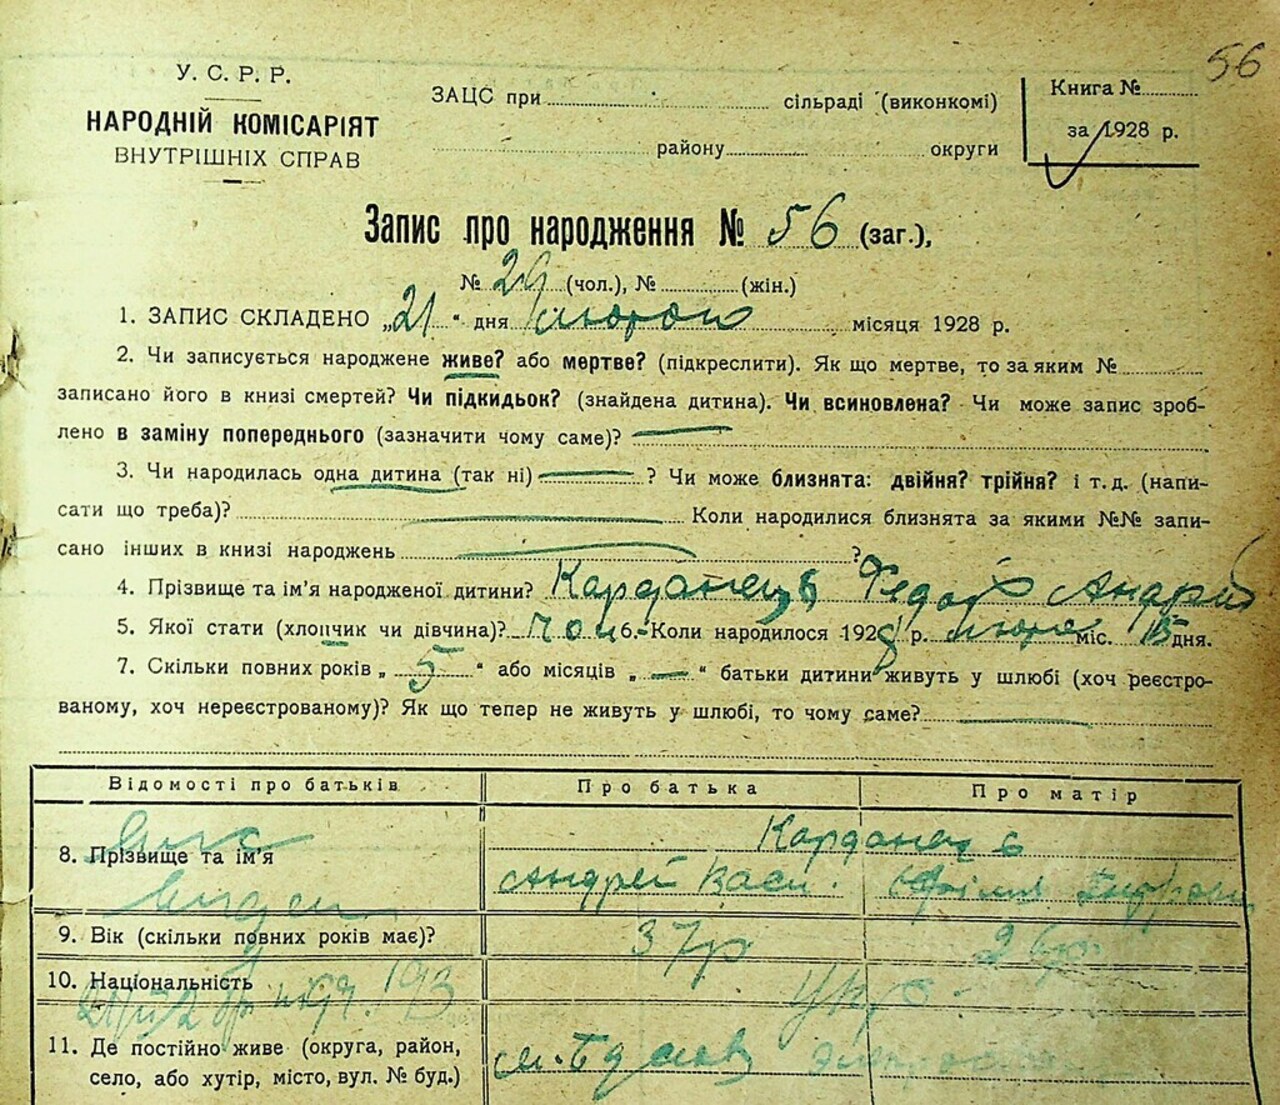 56
У. С. Р. Р.
НАРОДНІЙ КОМІСАРІЯТ
ВНУТРІШНІХ СПРАВ
ЗАЦС при сільраді (виконкомі)
району округи
Книга №
за 1928 р.
Запис про народження № 56 (заг.),
№ 29 (чол.), № (жін.)
1. ЗАПИС СКЛАДЕНО „21“ дня лютого місяця 1928 р.
2. Чи записується народжене живе? або мертве? (підкреслити). Як що мертве, то за яким №
записано його в книзі смертей? Чи підкидьок? (знайдена дитина). Чи всиновлена? Чи може запис зроб-
лено в заміну попереднього (зазначити чому саме)?
3. Чи народилась одна дитина (так ні) ? Чи може близнята: двійня? трійня? і т. д. (напи-
сати що треба)? Коли народилися близнята за якими №№ запи-
сано інших в книзі народжень ?
4. Прізвище та ім'я народженої дитини? Карданець Федор Андрій
5. Якої стати (хлопчик чи дівчина)? чол 6. Коли народилося 1928 р. лютого міс. 15 дня.
7. Скільки повних років „ 5 “ або місяців „ — “ батьки дитини живуть у шлюбі (хоч реєстро-
ваному, хоч нереєстрованому)? Як що тепер не живуть у шлюбі, то чому саме?
Відомості про батьків Про батька Про матір
8. Прізвище та ім'я Карданець
Андрей Васи.
9. Вік (скільки повних років має)? 37р 26р
10. Національність Укр
11. Де постійно живе (округа, район,
село, або хутір, місто, вул. № буд.)